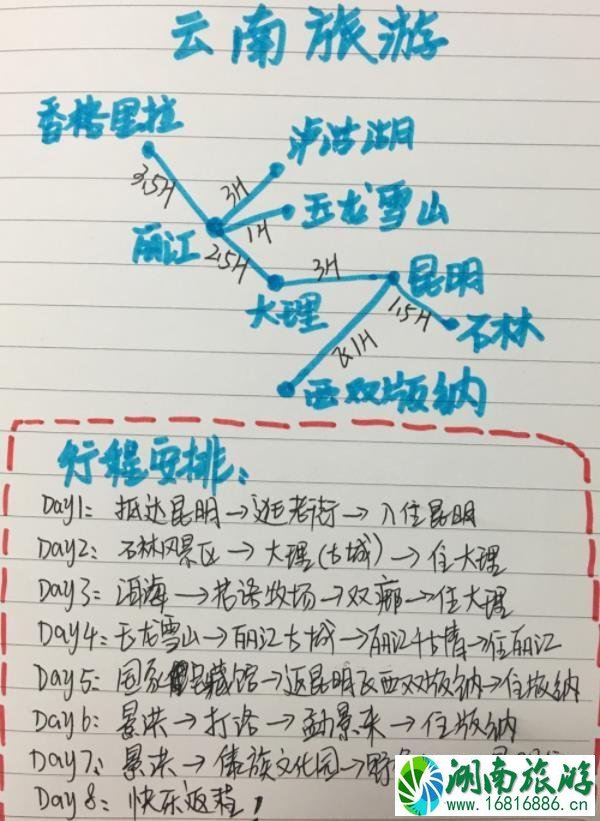 云南旅游
香格里拉
泸沽湖
3.5H
3H
玉龙雪山
丽江
1H
2.5H
3H
昆明
大理
1.5H
石林
8.1H
西双版纳
行程安排:
Day1: 抵达昆明→逛老街→入住昆明
Day2: 石林风景区→大理(古城)→住大理
Day3: 洱海→花语牧场→双廊→住大理
Day4: 玉龙雪山→丽江古城→丽江千古情→住丽江
Day5: 国家宝藏馆→返昆明飞西双版纳→住版纳
Day6: 景洪→打洛→勐景来→住版纳
Day7: 景洪→傣族文化园→野
Day8: 快乐返程!
湖南旅游
www.16816886.cn